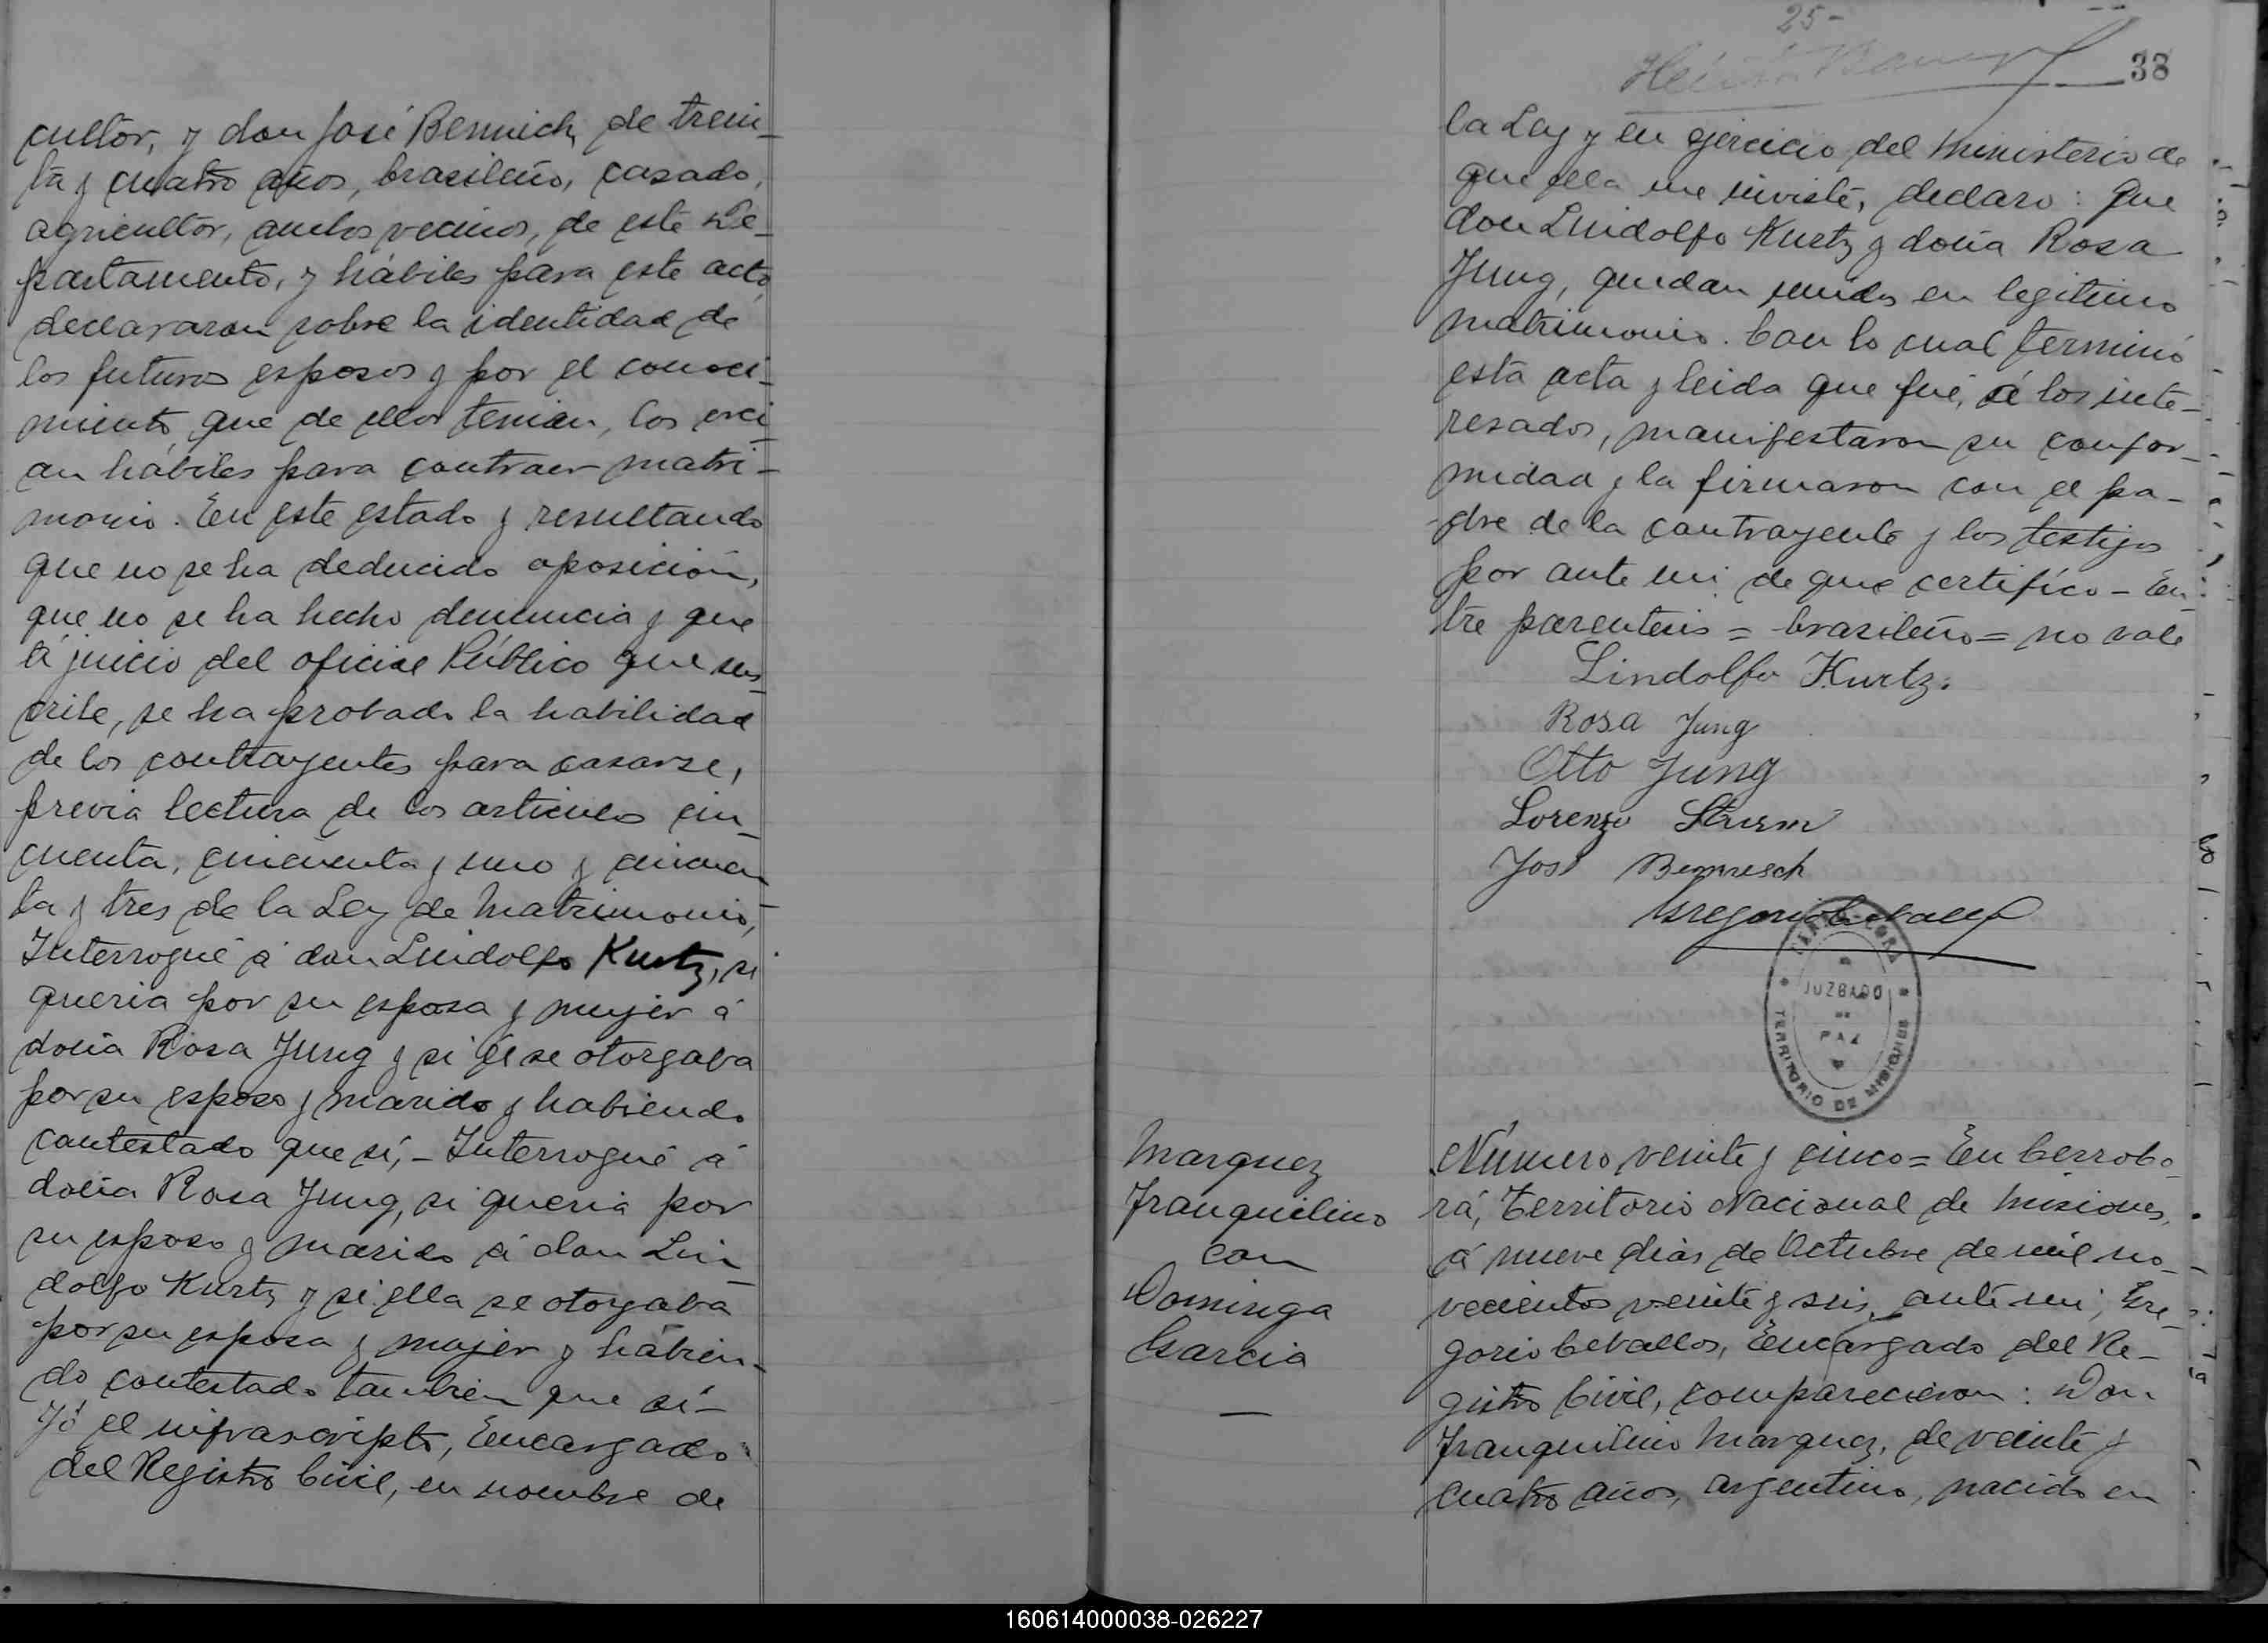 cultor, y don José Bennich, de trein-
ta y cuatro años, brasileño, casado,
agricultor, ambos vecinos, de este De-
partamento, y hábiles para este acto,
declararon sobre la identidad de
los futuros esposos y por el conoci-
miento que de ellos tenian, los crei-
an hábiles para contraer matri-
monio. En este estado y resultando
que no se ha deducido oposición,
que no se ha hecho denuncia y que
á juicio del oficial Público que sus-
cribe, se ha probado la habilidad
de los contrayentes para casarse,
previa lectura de los articulos cin-
cuenta, cincuenta y uno y cincuen-
ta y tres de la Ley de Matrimonio,
Interrogué á don Lindolfo Kurtz, si
queria por su esposa y mujer á
doña Rosa Jung y si él se otorgaba
por su esposo y marido y habiendo
contestado que sí,- Interrogué á
doña Rosa Jung, si queria por
su esposo y marido á don Lin-
dolfo Kurtz y si ella se otorgaba
por su esposa y mujer y habien-
do contestado tambien que sí-
Yó el infrascripto, Encargado
del Registro Civil, en nombre de
25-
38
la Ley y en ejercicio del Ministerio de
que ella me inviste, declaro: que
don Lindolfo Kurtz y doña Rosa
Jung, quedan unidos en legitimo
matrimonio. Con lo cual terminó
esta acta y leida que fué, á los inte-
resados, manifestaron su confor-
midad y la firmaron con el pa-
dre de la contrayente y los testigos
por ante mi de que certifíco - En-
tre parentesis = brasileño = no vale
Lindolfo Kurtz.
Rosa Jung
Otto Jung
Lorenzo Sturm
José Bennesch
Gregorio Ceballos
CERRO CORA
JUZGADO
DE
PAZ
TERRITORIO DE MISIONES
Marquez
Tranquilino
con
Dominga
Garcia
Número veinte y cinco = En Cerro Co-
rá, Territorio Nacional de Misiones,
á nueve dias de Octubre de mil no-
vecientos veinte y seis, ante mi, Gre-
gorio Ceballos, Encargado del Re-
gistro Civil, comparecieron: Don
Tranquilino Marquez, de veinte y
cuatro años, argentino, nacido en
160614000038-026227